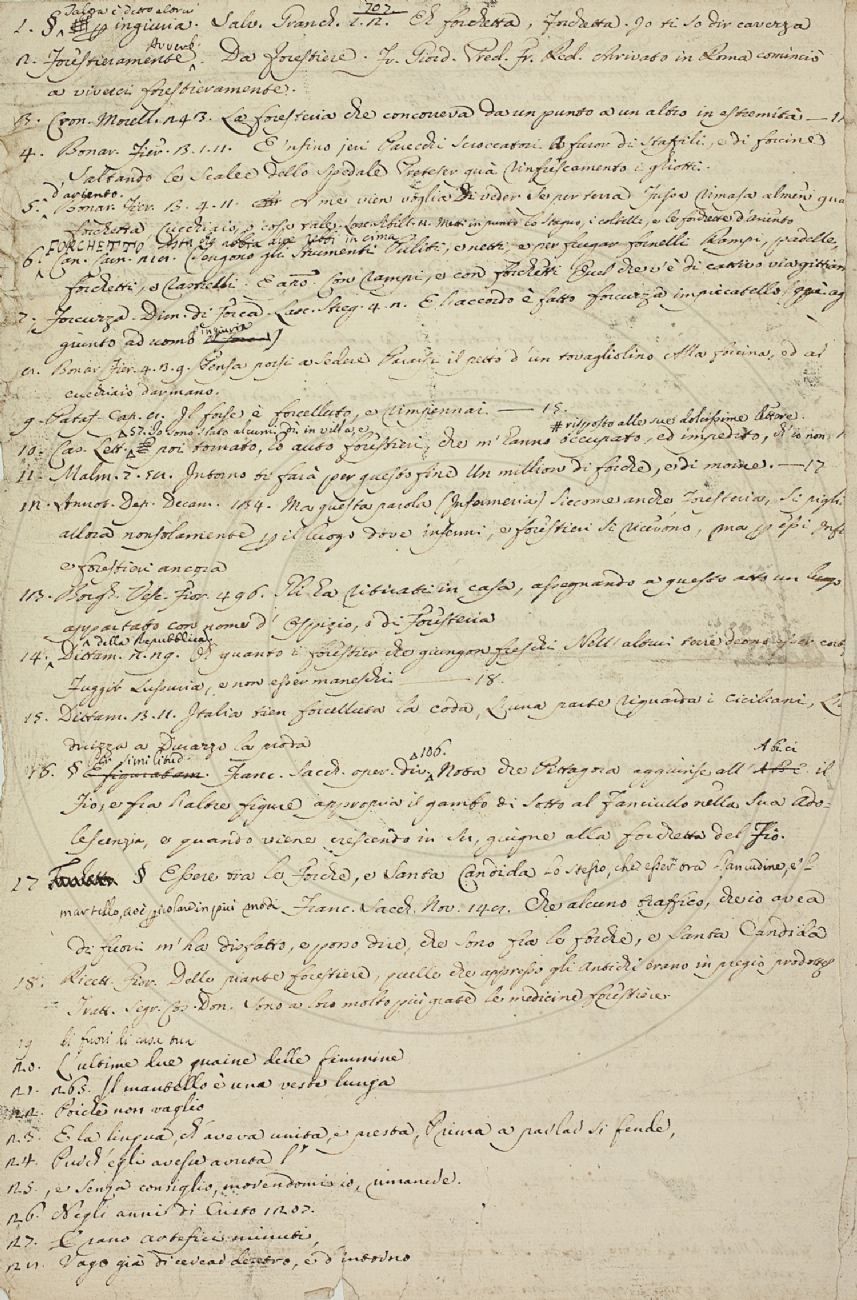 707
Talora è detto alcui
1. § p ingiuria. Salv. Granch. 2. 12. Eh forchetta, forchetta. Io ti so dir cavezza
Avverb.
2. Forestieramente. Da forestiere. Fr. Giord. Pred. Fr. Red. Arrivato in Roma cominciò
a viverci forestieramente.
3. Cron. Morell. 243. La foresteria che concorreva da un punto a un altro in estremità
4. Bonar. Fier. 3. 1. 11. E insino jeri Parecchi scioccatori A furor di staffili, e di forcine
Saltando le Scalee dello Spedale qua Rinfrescamento i gliotti.
d'ariento.
5. Bonar. Fier. 3. 4. 11. me vien voglia Di veder se per terra fusse Rimasa almen qua
forchetta cucchiaio, o cosa tale. Lasc. Sibill. Metti in punto lo stagno, i coltelli, e le forchette d'ariento
FORCHETTO Asta che abbia due in cima
6. Can. Carn. Tengono gli strumenti Puliti, e netti, e per frugar fornelli Rampi, padelle,
forchetti, e Martelli. E Con Rampi, e con forchetti Quel che v'è di cattivo via gittiam
7. Forcuzza. Dim. di forca. Lasc. Streg. 4. 2. E l'accordo è fatto forcuzza impiccatello (quà ag
giunto ad uomo ingiuria)
8. Bonar. Fier. 4. 3. 9. Pensa porsi a sedere Pararsi il petto d'un tovagliolino Alla forcina, ed al
cucchiaio dar mano.
9. Pataff. Cap. 8. Il forse è forcelluto, e Rimpennai. — 15.
57. Io sono stato alcuni dì in villa, e # risposto alle sue dolcissime lettere.
10. Cas. Lett. poi tornato, ò auto forestieri, che m'hanno occupato, ed impedito, ch'io non
11. Malm. 2. 58. Intorno ti farà per questo fine Un million di forche, e di moine. — 17
12. Annot. Dep. Decam. 134. Ma questa parola (Infermeria) siccome anche foresteria, si piglia
allora non solamente p il luogo dove infermi, e forestieri si ricevono, ma p essi infe
e forestieri ancora
13. Borgh. Vesc. Fior. 496. Gli ha ritirati in casa, assegnando a questo atto un luogo
appartato con nome d'Ospizio, o di Foresteria
della Repubblica,
14. Dittam. 2. 29. Di quanto i forestier che giungon freschi Nell'altrui terre deono esser
fuggir Lussuria, e non esser maneschi. — 18.
15. Dittam. 3. 11. Italia tien forcelluta la coda, L'una parte riguarda i Ciciliani, L
drizza a Durazzo la proda
Per similitud. 106. Abici
16. § E figuratam. Franc. Sacch. oper. div. Nota che Pittagora aggiunse all' Abc il
fio, e fra l'altre figure appropria il gambo di sotto al fanciullo nella sua ado-
lescenza, e quando viene crescendo in su, giugne alla forchetta del fio.
17 § Essere tra le forche, e Santa Candida Lo stesso, che esser tra l'ancudine, e 'l
martello, non potendo in più modi Franc. Sacch. Nov. 148. Che alcuno traffico, che io avea
di fuori m'ha disfatto, e posso dire, che sono fra le forche, e Santa Candida
18. Ricett. Fior. Delle piante forestiere, quelle che appresso gli Antichi erano in pregio prodotte
Tratt. Segr. Cos. Don. Sono a loro molto più grate le medicine forestiere.
19 di fuori di casa tua
20. L'ultime due guaine delle femmine
21. 263. Il mantello è una veste lunga
22. Poichè non vaglio
23. E la lingua, ch'aveva unita, e presta, Prima a parlar si fende,
24. Purch'egli avesse avuta l'
25. , e senza consiglio, movendomi io, rimanere.
26. Negli anni di Cristo 1207.
27. Erano artefici minuti,
28. Vago già di cercar dentro, e d'intorno